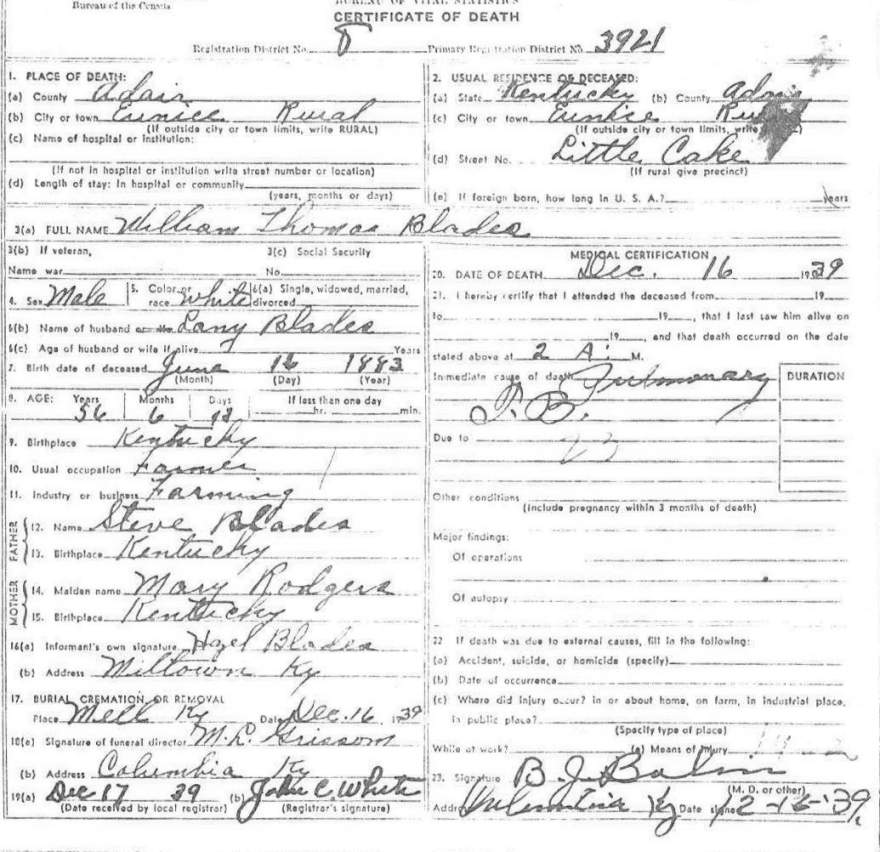 Bureau of the Census
BUREAU OF VITAL STATISTICS
CERTIFICATE OF DEATH
Registration District No. 8 Primary Registration District No. 3921
1. PLACE OF DEATH:
(a) County Adair
(b) City or town Eunice Rural
(If outside city or town limits, write RURAL)
(c) Name of hospital or institution:
(If not in hospital or institution write street number or location)
(d) Length of stay: In hospital or community
(years, months or days)
2. USUAL RESIDENCE OF DECEASED:
(a) State Kentucky (b) County Adair
(c) City or town Eunice Rural
(If outside city or town limits, write
(d) Street No. Little Cake
(If rural give precinct)
(e) If foreign born, how long in U. S. A.? years
3(a) FULL NAME William Thomas Blades
3(b) If veteran, 3(c) Social Security
Name war No.
4. Sex Male 5. Color or race White 6(a) Single, widowed, married, divorced
6(b) Name of husband or Lany Blades
6(c) Age of husband or wife if alive Years
7. Birth date of deceased June 16 1883
(Month) (Day) (Year)
8. AGE: Years Months Days If less than one day
56 6 hr. min.
9. Birthplace Kentucky
10. Usual occupation Farmer
11. Industry or business Farming
FATHER
12. Name Steve Blades
13. Birthplace Kentucky
MOTHER
14. Maiden name Mary Rodgers
15. Birthplace Kentucky
16(a) Informant's own signature Hazel Blades
(b) Address Miltown Ky
17. BURIAL, CREMATION, OR REMOVAL
Place Mell Ky Date Dec. 16 1939
18(a) Signature of funeral director M. L. Grissom
(b) Address Columbia Ky
19(a) Dec 17 39 (b) John C. White
(Date received by local registrar) (Registrar's signature)
MEDICAL CERTIFICATION
20. DATE OF DEATH Dec. 16 1939
21. I hereby certify that I attended the deceased from 19
to 19 , that I last saw him alive on
19 , and that death occurred on the date
stated above at 2 A. M.
Immediate cause of death Pulmonary DURATION
T. B.
Due to
Other conditions
(Include pregnancy within 3 months of death)
Major findings:
Of operations
Of autopsy
22 If death was due to external causes, fill in the following:
(a) Accident, suicide, or homicide (specify)
(b) Date of occurrence
(c) Where did injury occur? in or about home, on farm, in industrial place,
in public place?
(Specify type of place)
While at work? (e) Means of injury
23. Signature B. J.
(M. D. or other)
Address Ky Date signed 12-16-39